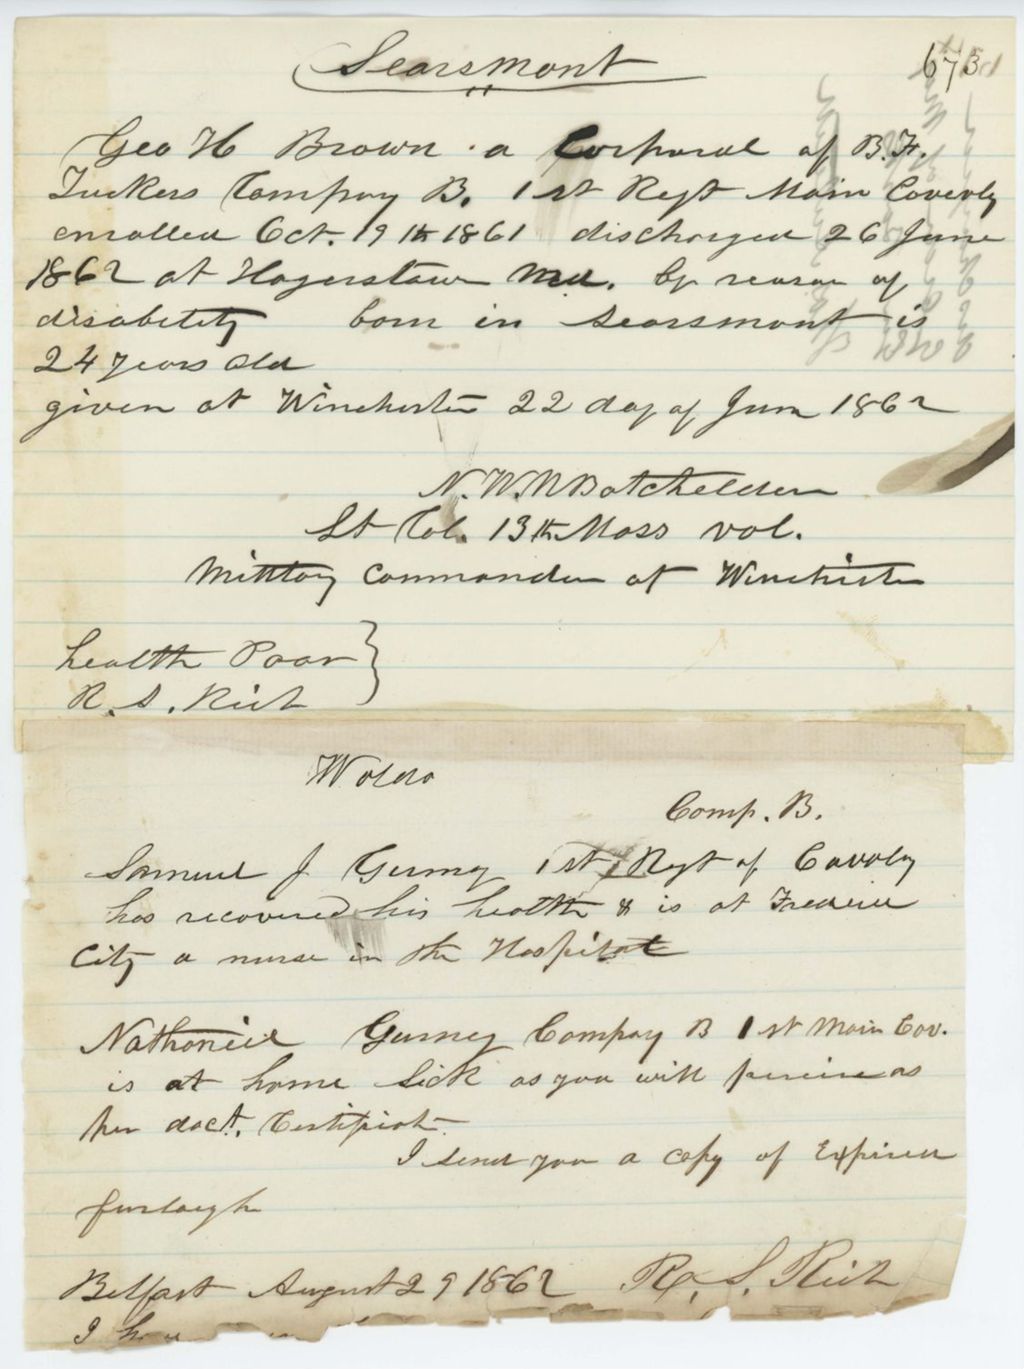 Searsmont
673
Geo H Brown a Corporal of B.F.
Tuckers Compay B. 1st Regt Main Caverly
enrolled Oct. 19th 1861 discharged 26 June
1862 at Hagerstown Md. by reason of
disabelity born in Searsmont is
24 years old
given at Winchester 22 day of June 1862
N.W.N Batchelder
Lt Col. 13th Mass vol.
Military Commander at Winchister
health Poor }
R. S. Rich
Waldo
Comp. B.
Samuel J Gurney 1st Regt of Cavaly
has recovered his health & is at Frederick
City a nurse in the Hospital
Nathaniel Gurney Compay B 1st Main Cav.
is at home Sick as you will perceive as
per doct. Certificat
I send you a copy of Expired
furlough
Belfast August 29 1862 R. S. Rich
I